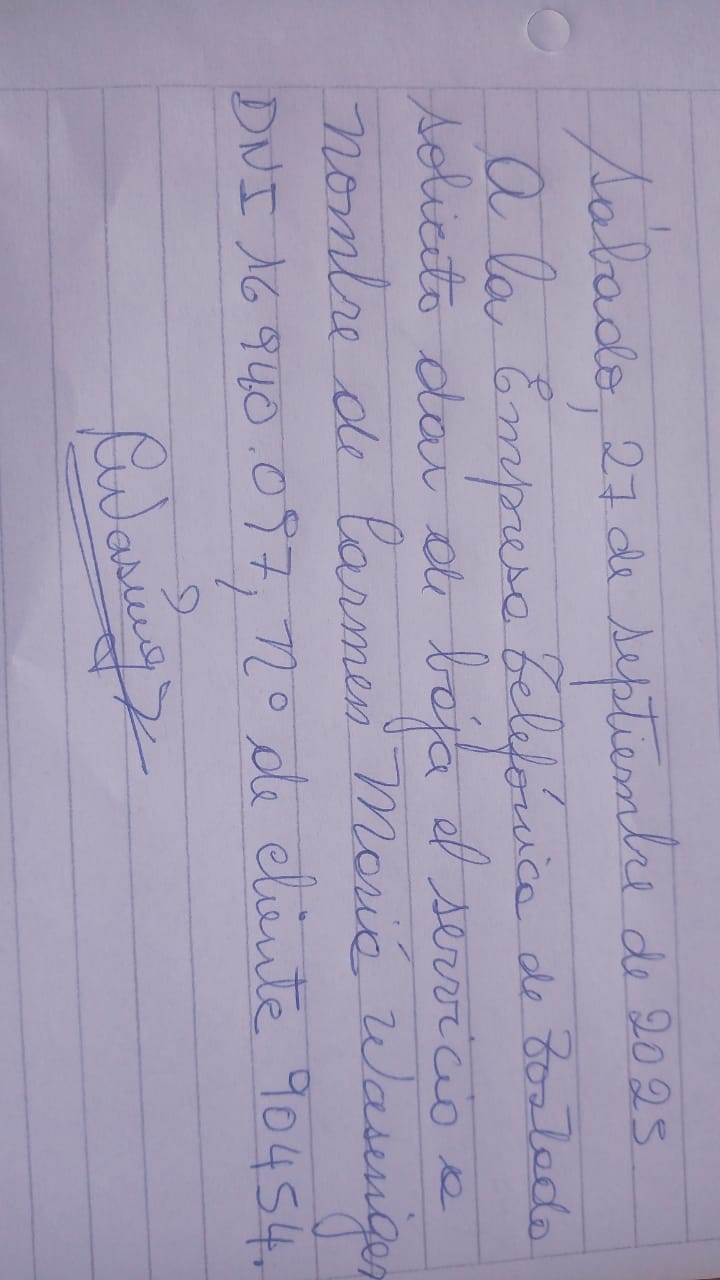 Sábado, 27 de septiembre de 2025
A la Empresa Telefónica de Tostado
solicito dar de baja el servicio a
nombre de Carmen María Waseniger
DNI 16 940.097, n° de cliente 90454.